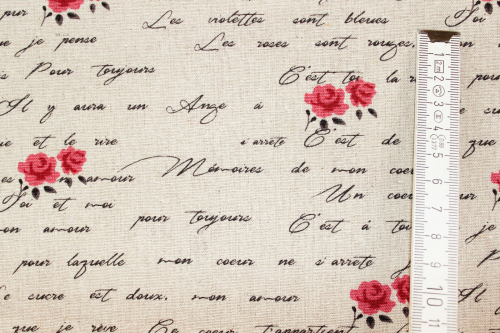 Les violettes sont bleues Toi
que je pense Les roses sont rouges,
Pour toujours C'est toi la
Il y aura un Ange à
et le rire s'arrete C'est de que
mon amour Mémoires de mon coeur
Toi et moi Un coeur
mon amour pour toujours C'est à toi
pour laquelle mon coeur ne s'arrete
Le sucre est doux, mon amour
que je rêve Ce coeur t'appartient
1
2
3
4
5
6
7
8
9
10
11